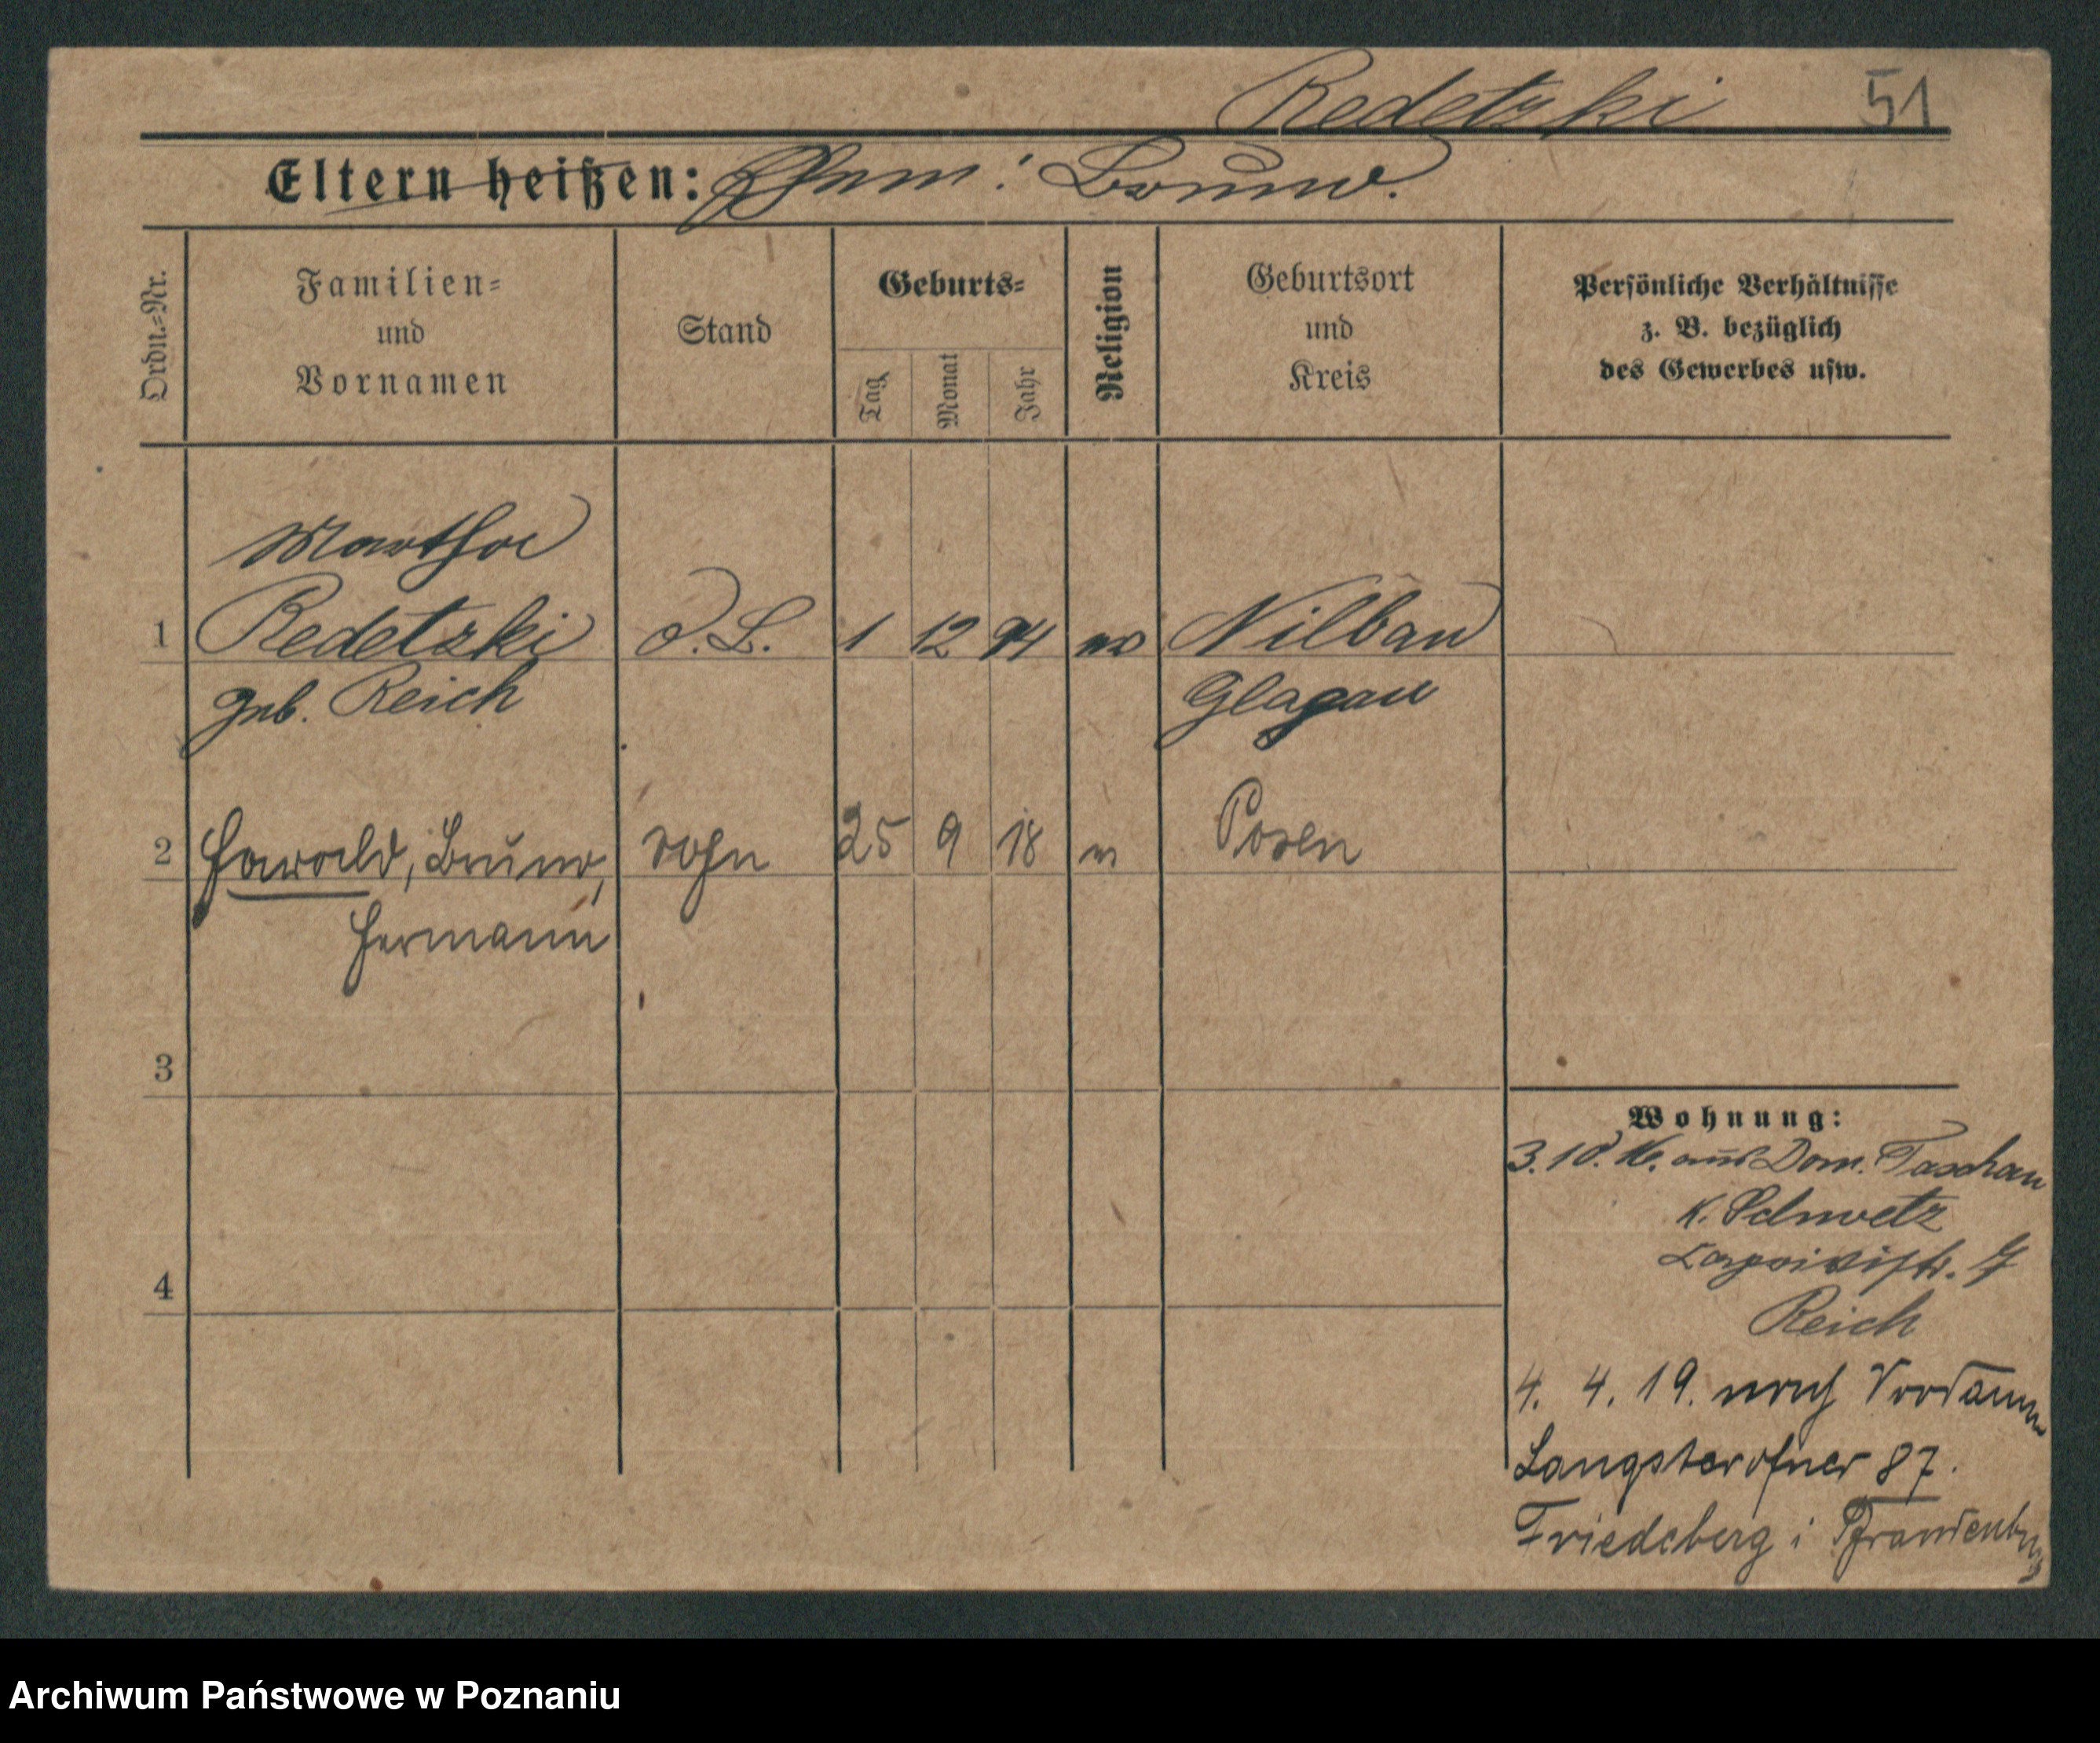 Redetzki 51
Eltern heißen: Ehem: Bruno.
Ordn.-Nr.
Familien-
und
Vornamen
Stand
Geburts-
Tag
Monat
Jahr
Religion
Geburtsort
und
Kreis
Persönliche Verhältnisse
z. B. bezüglich
des Gewerbes usw.
Martha
1 Redetzki o.B. 1 12 94 ev Nilbau
geb. Reich Glogau
2 Harald, Bruno, Sohn 25 9 18 ev Posen
Hermann
3
Wohnung:
3.10.16. aus Dom. Taschau
K. Schwetz
4
Reich
4. 4. 19. nach Vordamm
87.
Friedeberg i Brandenburg
Archiwum Państwowe w Poznaniu